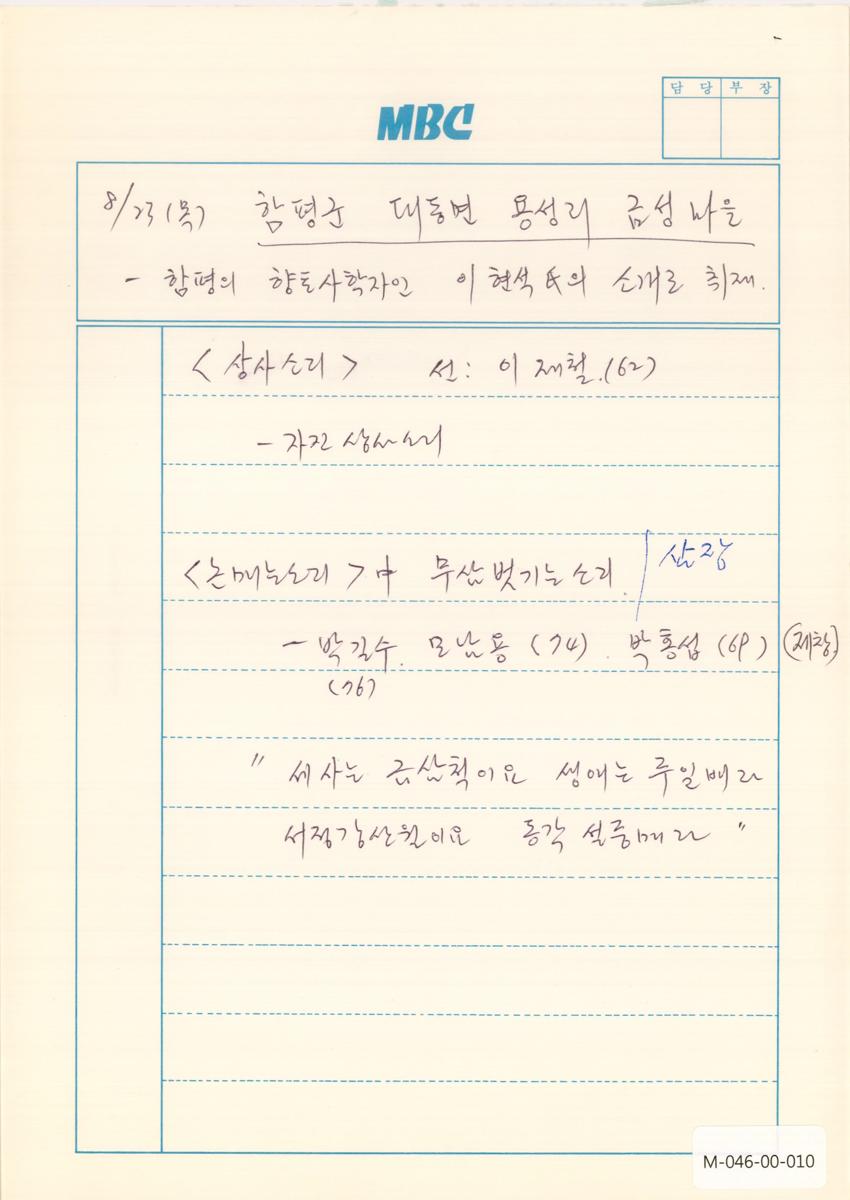 담 당 부 장
MBC
8/23(목) 함평군 대동면 용성리 금성마을
- 함평의 향토사학자인 이현석氏의 소개로 취재.
<상사소리> 선: 이재철.(62)
- 자진상사소리
<논매는소리>中 무삼벗기는소리. 삼장
- 박길수. 모남용(74). 박홍섭(69) (제창)
(76)
" 세사는 금삼척이요 생애는 주일배라
서정강산월이요 동각설중매라 "
M-046-00-010